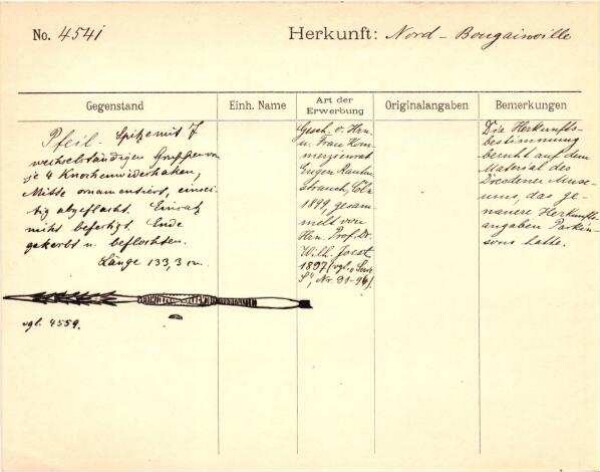 No. 4541
Herkunft: Nord-Bougainville
Gegenstand
Einh. Name
Art der Erwerbung
Originalangaben
Bemerkungen
Pfeil. Spitze mit 7
wechselständigen Gruppen von
je 4 Knochenwiderhaken,
Mitte ornamentiert, einsei-
tig abgeflacht. Einsatz
nicht befestigt. Ende
gekerbt u. beflochten.
Länge 133,3 cm.
vgl. 4559.
Gesch. v. Hrn.
u. Frau Kom-
merzienrat
Eugen Rauten-
strauch, Cöln
1899, gesam-
melt von
Hrn. Prof. Dr.
Wilh. Joest
1897 (vgl.
Nr. 91-96).
Die Herkunfts-
bestimmung
beruht auf dem
Material des
Dresdener Muse-
ums, das ge-
nauere Herkunfts-
angaben Parkin-
sons hatte.